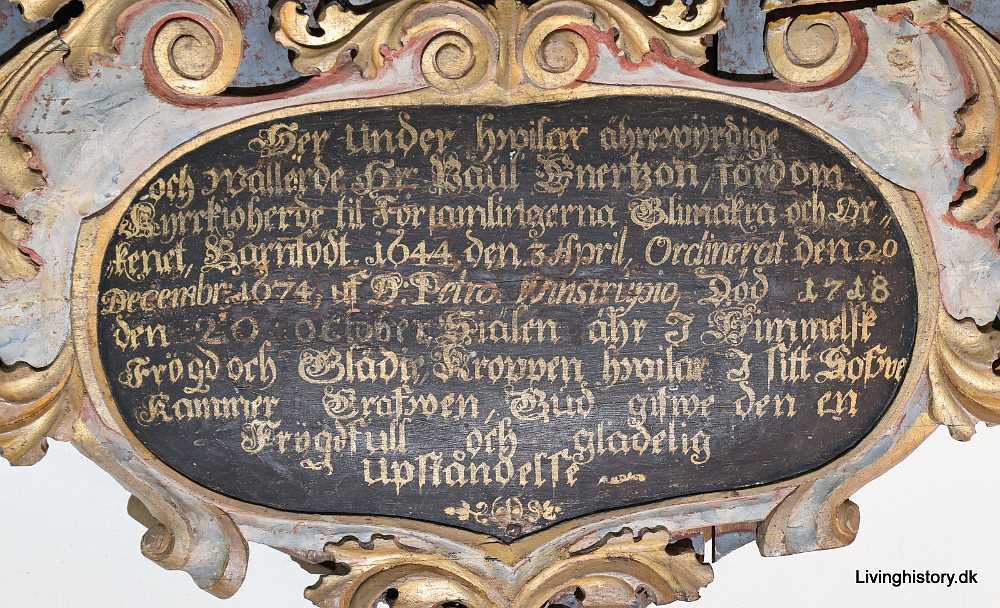 Her under hwilar ährewyrdige
och wällerde Hr Påul Enertzon, fordom
Kyrckioherde til Församlingerna Glimåkra och Ör-
kenet, Barnfödt. 1644, den 3 April, Ordinerat. den 20
Decembr. 1674, uf D. Petro. Winstrupio, Död 1718
den 20 october. Siälen ähr I Himmelssk
Frögd och Glädie, Kroppen hwilar I sitt Sofwe
Kammer Grafwen, Gud gifwe den en
Frögdfull och gladelig
upståndelsse
Livinghistory.dk